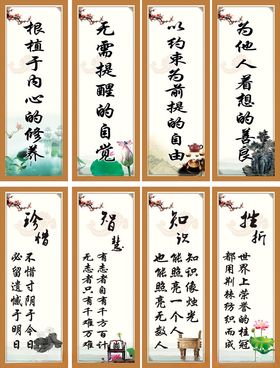 根植于内心的修养
无需提醒的自觉
以约束为前提的自由
为他人着想的善良
珍惜
不惜寸阴于今日
必留遗憾于明日
智慧
有志者自有千方百计
无志者只有千难万难
知识
知识像烛光
能照亮一个人
也能照亮无数人
挫折
世界上荣誉的桂冠
都用荆棘纺织而成